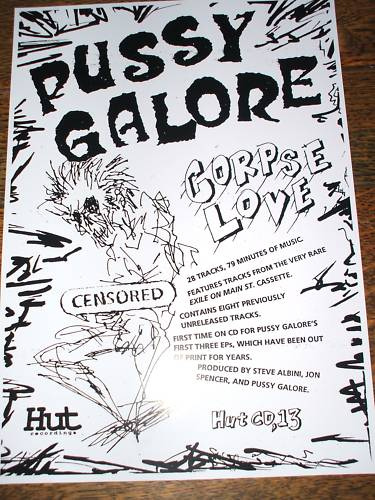 PUSSY
GALORE
CORPSE
LOVE
CENSORED
28 TRACKS, 79 MINUTES OF MUSIC.
FEATURES TRACKS FROM THE VERY RARE
EXILE ON MAIN ST. CASSETTE.
CONTAINS EIGHT PREVIOUSLY
UNRELEASED TRACKS.
FIRST TIME ON CD FOR PUSSY GALORE'S
FIRST THREE EPs, WHICH HAVE BEEN OUT
OF PRINT FOR YEARS.
PRODUCED BY STEVE ALBINI, JON
SPENCER, AND PUSSY GALORE.
Hut
recordings
Hut CD,13